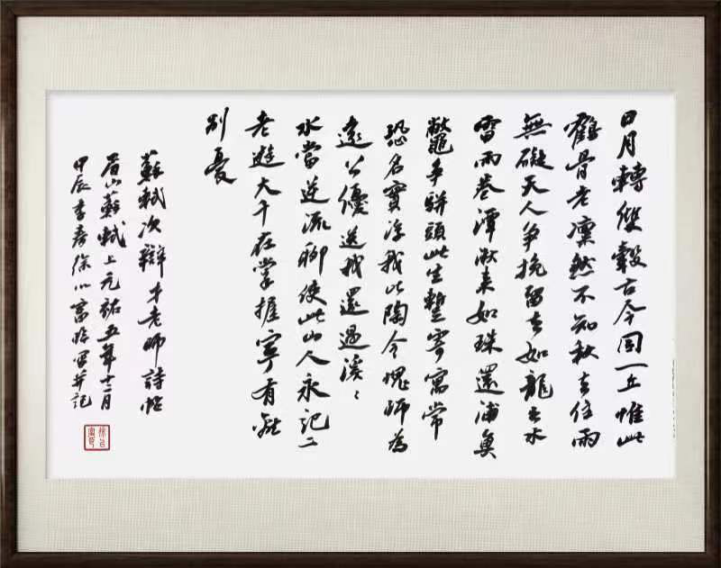 日月轉雙轂古今同一丘惟此
鶴骨老凜然不知秋去住兩
無礙天人爭挽留去如龍出水
雷雨卷潭湫来如珠還浦魚
鱉爭駢頭此生暫寄寓常
恐名實浮我比陶令愧師為
遠公優送我還過溪〻
水當逆流聊使此山人永記二
老遊大千在掌握寧有離
別憂
蘇軾次辯才老師詩帖
眉山蘇軾上元祐五年十二月
甲辰季春徐小并記